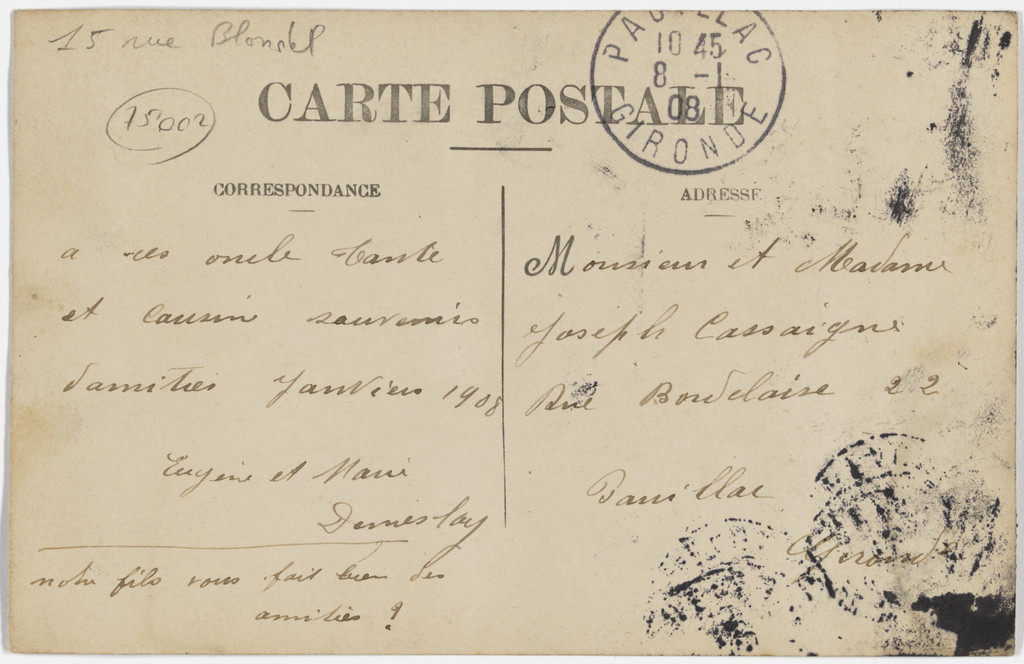 15 rue Blondel
75002
CARTE POSTALE
PAUILLAC
10 45
8 -1
08
GIRONDE
CORRESPONDANCE
a ses oncle tante
et Cousin souvenirs
damitiés Janvier 1908
Eugène et Marie
Demeslay
notre fils vous fait bien des
amitiés !
ADRESSE
Monsieur et Madame
Joseph Cassaigne
Rue Bordelaise 22
Pauillac
Gironde